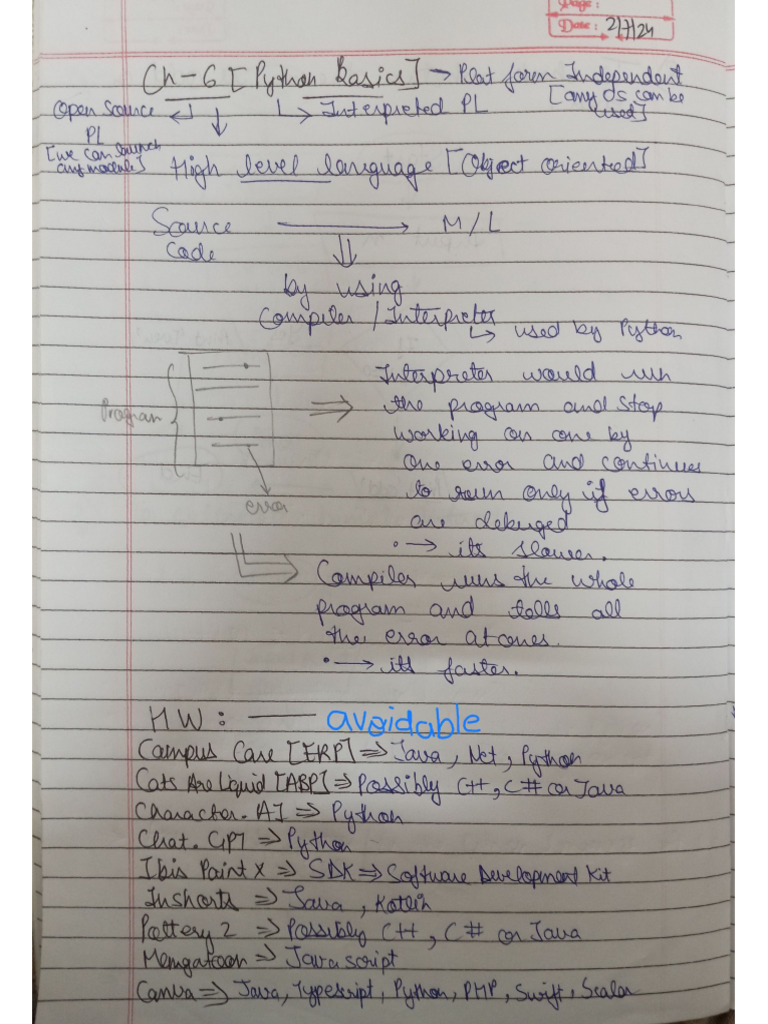 Page :
Date : 2/7/24
Ch-6 [Python Basics] → Plat form Independent
[any OS can be used]
Open Source PL
[we can launch any module]
Interpreted PL
High level language [Object oriented]
Source Code → M/L
by using
Compiler / Interpreter
used by Python
Program
error
Interpreter would run
the program and stop
working on one by
one error and continues
to run only if errors
are debuged
• → its slower.
Compiler runs the whole
program and tells all
the error at ones.
• → its faster.
HW : — avoidable
Campus Care [ERP] ⇒ Java, Net, Python
Cats Are Liquid [ABP] ⇒ Possibly C++, C# or Java
Character. AI ⇒ Python
Chat. GPT ⇒ Python
Ibis Paint X ⇒ SDK ⇒ Software Development Kit
Inshorts ⇒ Java, Kotlin
Pottery 2 ⇒ Possibly C++, C# or Java
⇒ Java script
Canva ⇒ Java, Typescript, Python, PHP, Swift, Scalar